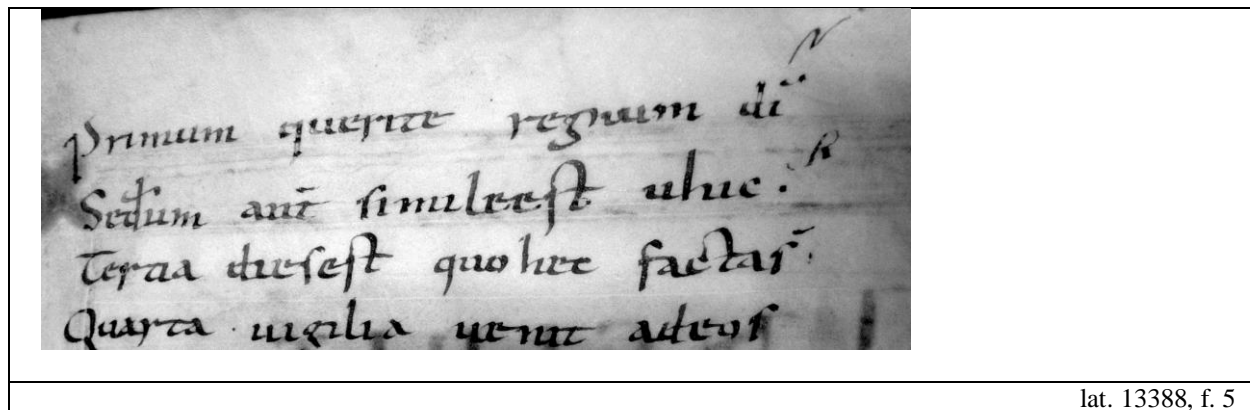 Primum querite regnum di
Secdum aut simile est uhuc.
Tercia dies est quo hec facta s̄.
Quarta uigilia uenit ad eos
lat. 13388, f. 5